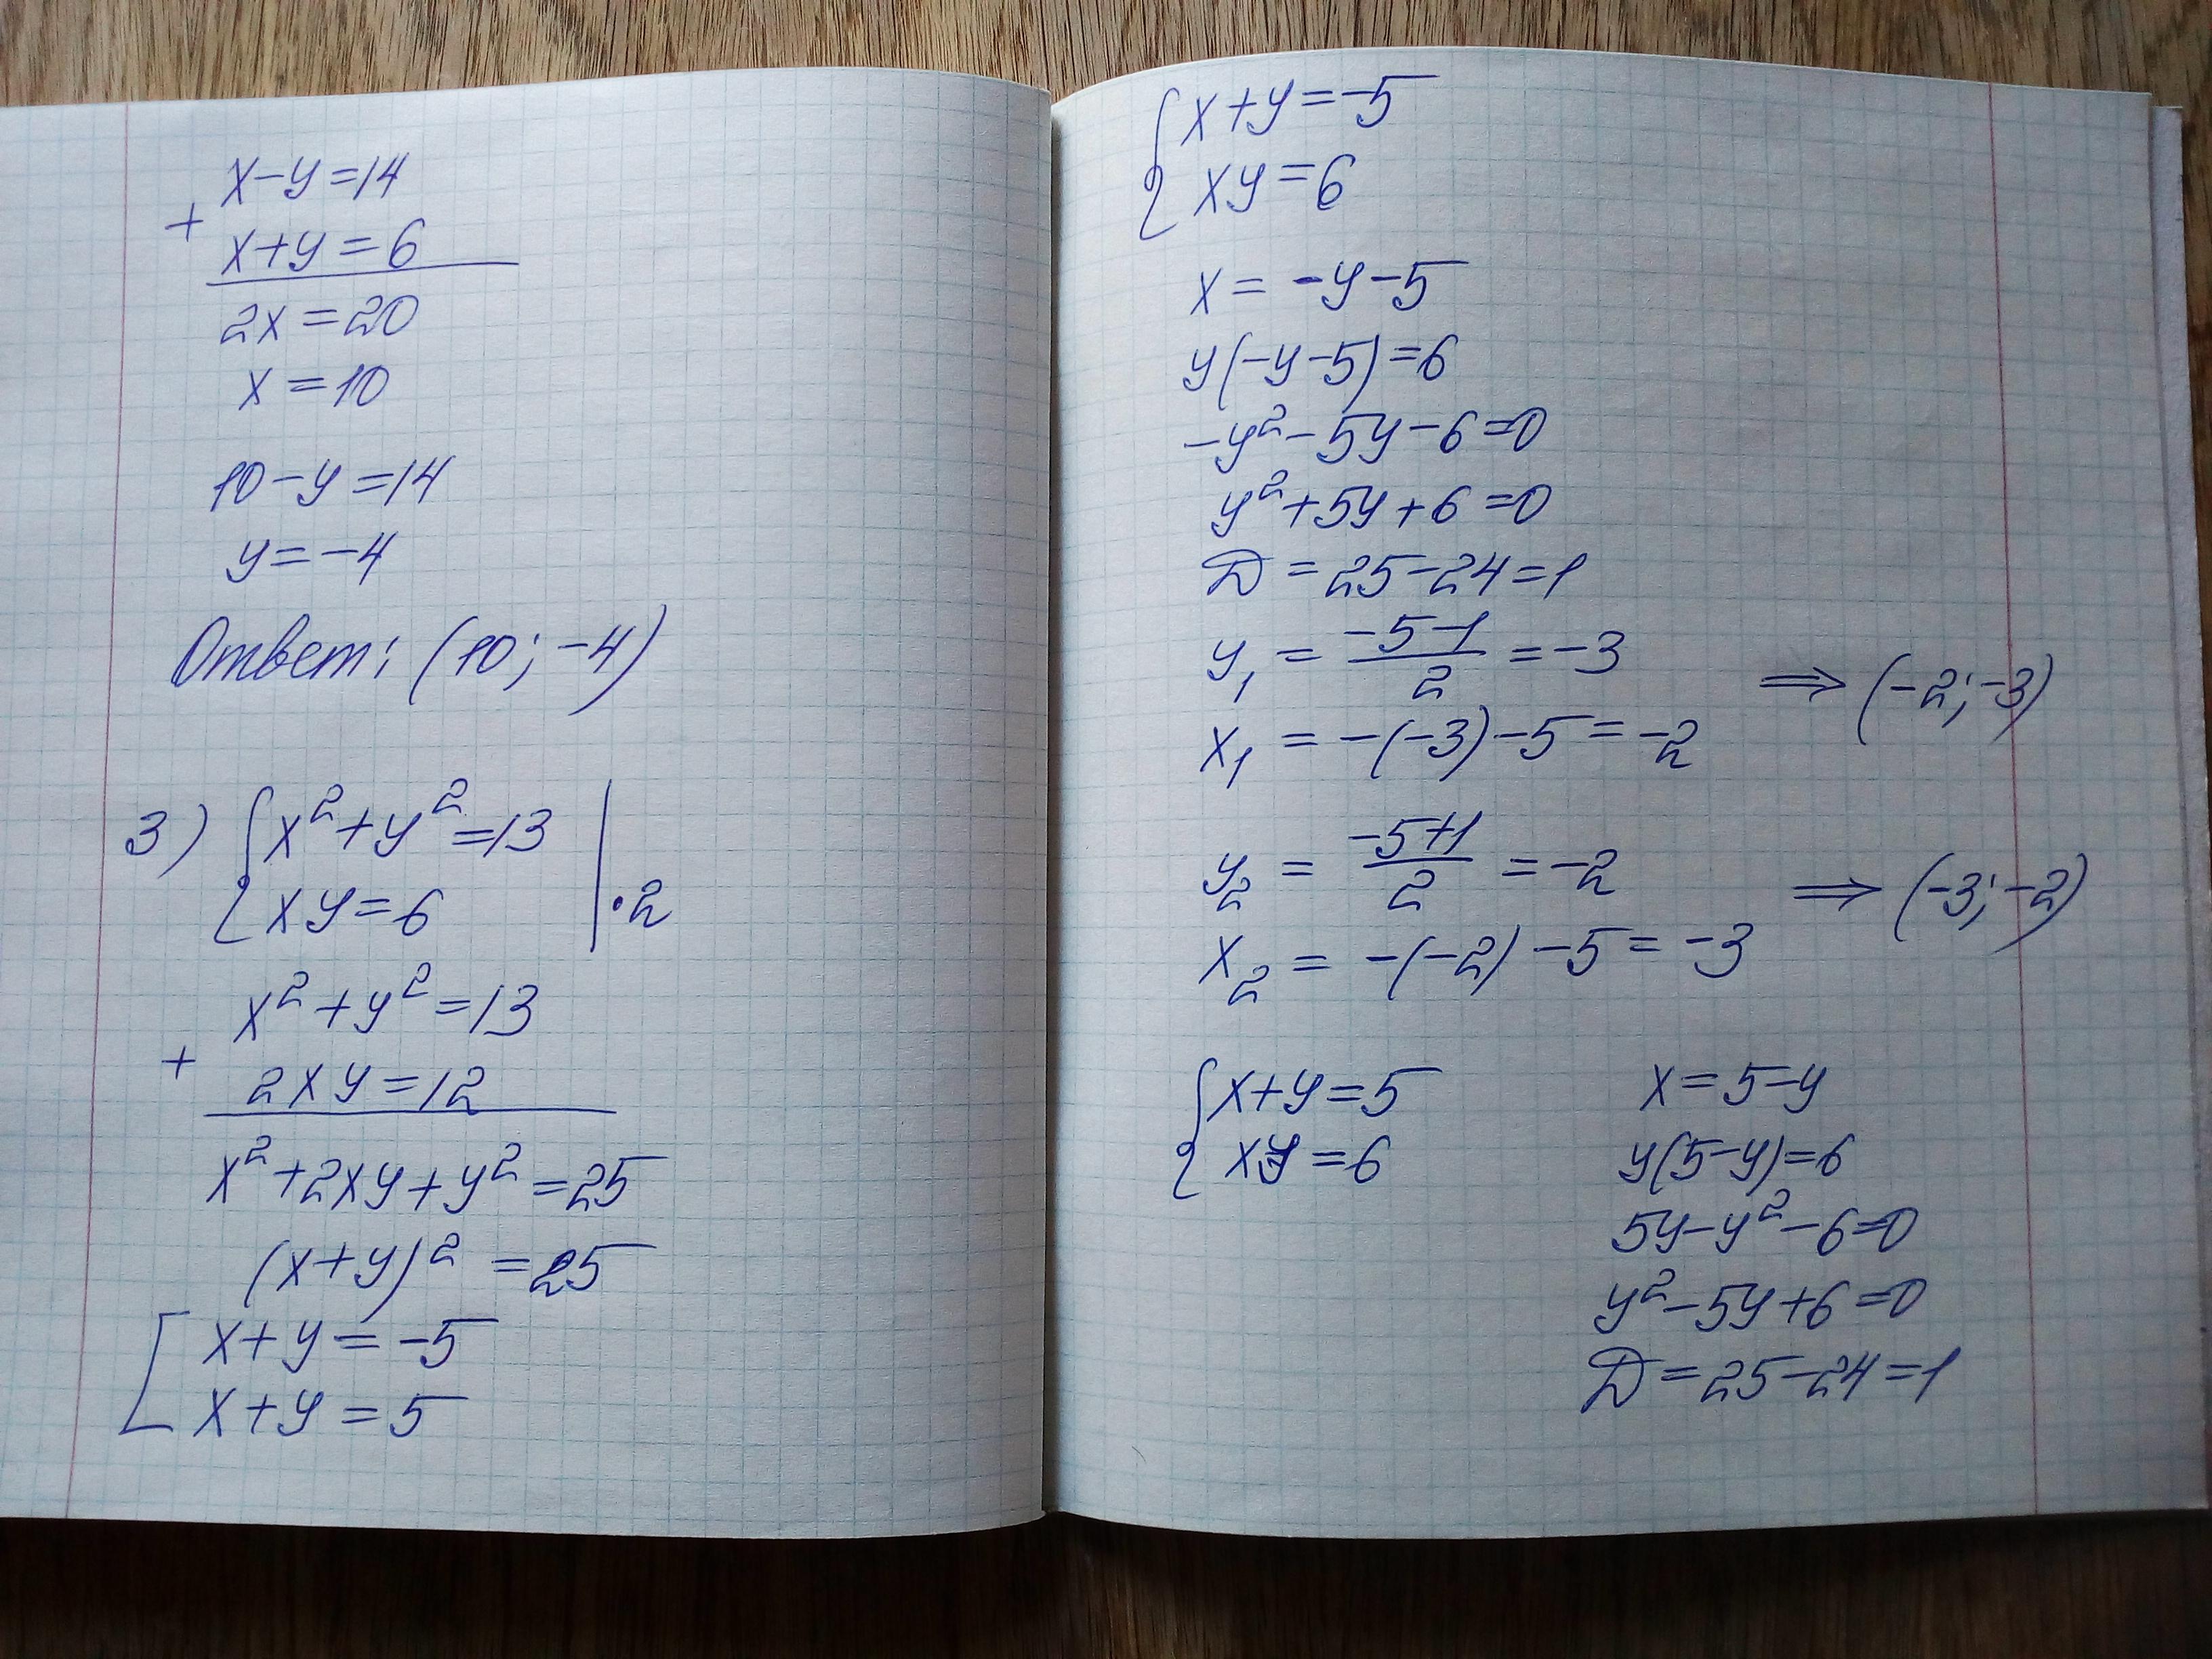 x-y=14
+ x+y=6
2x=20
x=10
10-y=14
y=-4
Ответ: (10; -4)
3) { x²+y²=13
xy=6 |·2
x²+y²=13
+ 2xy=12
x²+2xy+y²=25
(x+y)²=25
[ x+y=-5
x+y=5
{ x+y=-5
xy=6
x=-y-5
y(-y-5)=6
-y²-5y-6=0
y²+5y+6=0
D=25-24=1
y₁ = (-5-1)/2 = -3
⇒ (-2; -3)
x₁ = -(-3)-5 = -2
y₂ = (-5+1)/2 = -2
⇒ (-3; -2)
x₂ = -(-2)-5 = -3
{ x+y=5
xy=6
x=5-y
y(5-y)=6
5y-y²-6=0
y²-5y+6=0
D=25-24=1